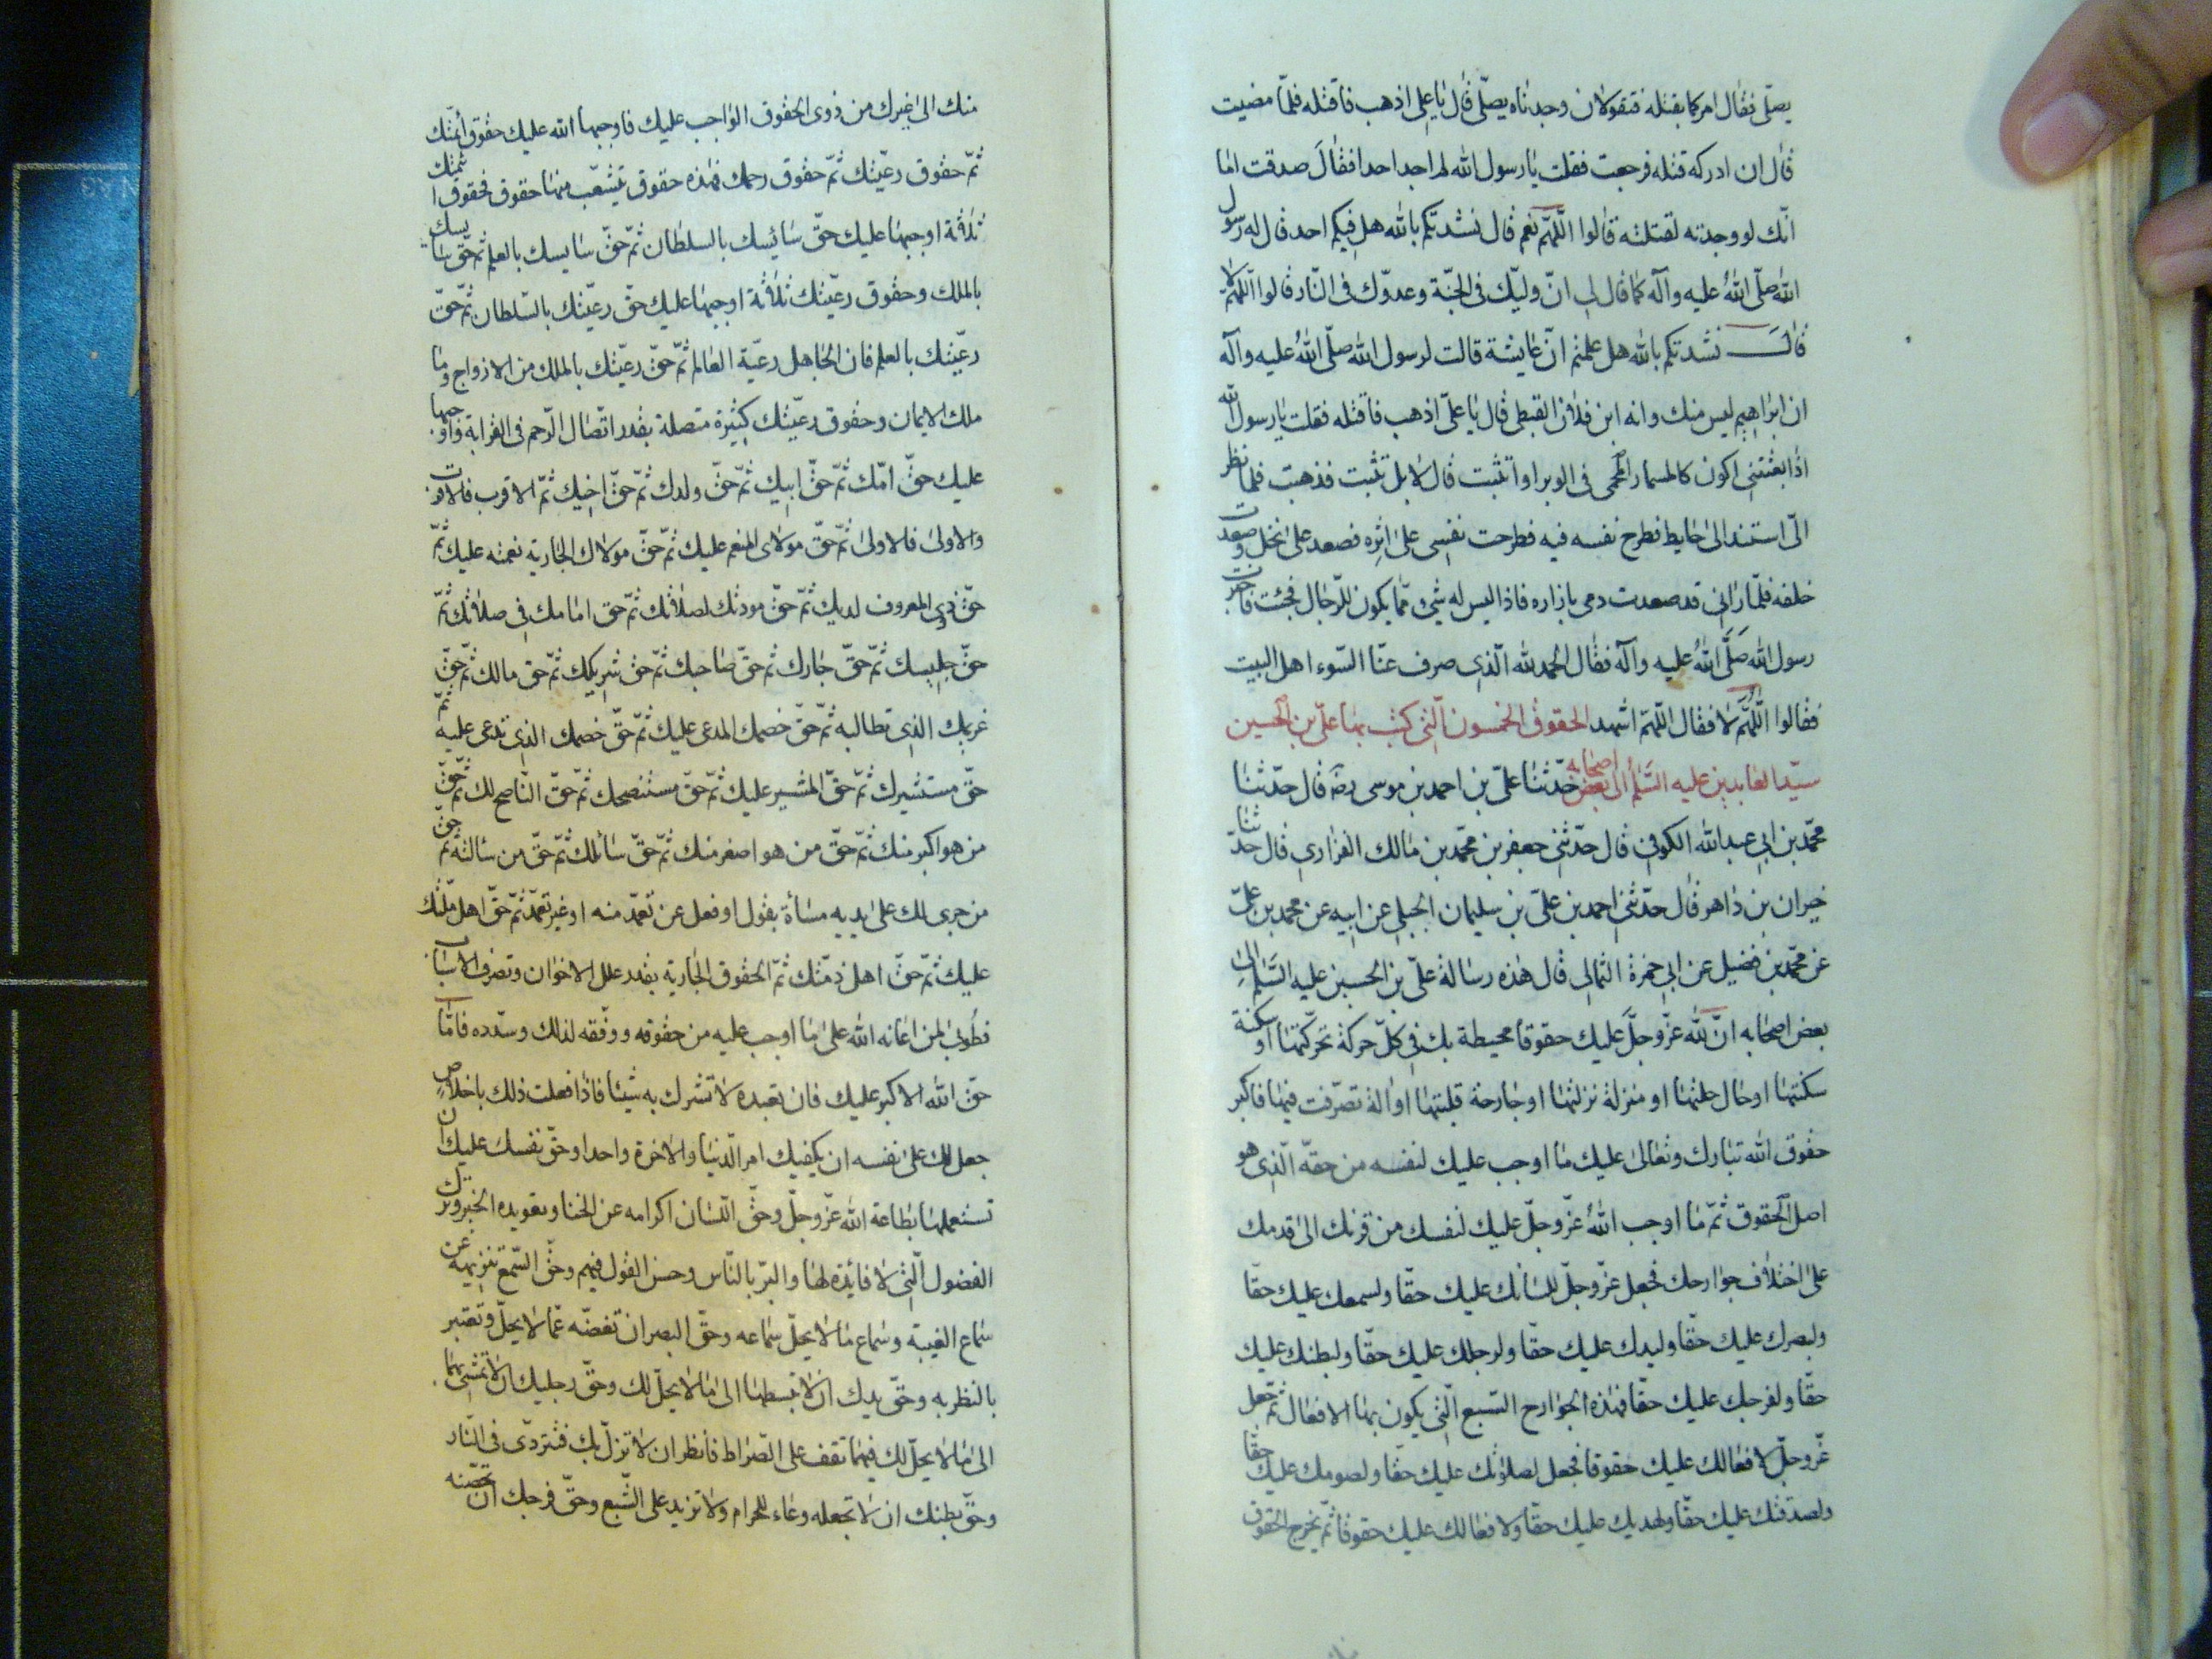 يصلّى فقال امركما بقتله فتقولان وجدناه يصلّى قال يا على اذهب فاقتله فلمّا مضيت
قال ان ادركه قتله فرجعت فقلت يا رسول الله لم اجد احدا فقال صدقت اما
انّك لو وجدته لقتلته قالوا اللّهمّ نعم قال نشدتكم بالله هل فيكم احد قال له رسول
الله صلّى الله عليه وآله كما قال لى انّ وليّك فى الجنّة وعدوّك فى النّار قالوا اللّهمّ لا
قال نشدتكم بالله هل علمتم انّ عايشة قالت لرسول الله صلّى الله عليه وآله
ان ابراهيم ليس منك وانه ابن فلان القبطى قال يا علىّ اذهب فاقتله فقلت يا رسول الله
اذا بعثتنى اكون كالمسمار المحمى فى الوبر او اتثبت قال لا بل تثبت فذهبت فلما نظر
الىّ استند الى حايط فطرح نفسه فيه فطرحت نفسى على اثره فصعد على نخل وصعدت
خلفه فلمّا رانى قد صعدت رمى بازاره فاذا ليس له شىء ممّا يكون للرّجال فجئت فاخبرت
رسول الله صَلَّى اللهُ عليه وآله فقال الحمد لله الّذى صرف عنّا السّوء اهل البيت
فقالوا اللّهُمّ لا فقال اللّهمّ اشهد الحقوق الخمسون الّتى كتب بها علىّ بن الحسين
سيّد العابدين عليه السَّلمُ الى بعض اصحابه حدّثنا علىّ بن احمد بن موسى رضه قال حدّثنا
محمّد بن ابى عبد الله الكوفى قال حدّثنى جعفر بن محمّد بن مالك الفزارى قال حدّثنا
خيران بن داهر قال حدّثنى احمد بن علىّ بن سليمان الجبلى عن ابيه عن محمد بن علىّ
عن محمّد بن فضيل عن ابى حمزة الثمالى قال هذه رسالة علىّ بن الحسين عليه السَّلم الى
بعض اصحابه انّ لله عزّوجلَّ عليك حقوقا محيطة بك فى كلّ حركة تحرّكتها او سكنة
سكنتها او حال حلتها او منزلة نزلتها او جارحة قلبتها او الة تصرّفت فيها فاكبر
حقوق الله تبارك وتعالى عليك ما اوجب عليك لنفسه من حقّه الّذى هو
اصل الحقوق ثمّ ما اوجب اللهُ عزّوجلّ عليك لنفسك من قرنك الى قدمك
على اختلاف جوارحك فجعل عزّوجلّ للسانك عليك حقّا ولسمعك عليك حقّا
ولبصرك عليك حقّا وليدك عليك حقّا ولرجلك عليك حقّا ولبطنك عليك
حقّا ولفرجك عليك حقّا فهذه الجوارح السّبع الّتى يكون بها الافعال ثمّ جعل
عزّوجلّ لافعالك عليك حقوقا فجعل لصلوتك عليك حقّا ولصومك عليك حقّا
ولصدقتك عليك حقّا ولهديك عليك حقّا ولافعالك عليك حقوقا ثمّ يخرج الحقوق
منك الى غيرك من ذوى الحقوق الواجب عليك فاوجبها الله عليك حقوق أئمّتك
ثمّ حقوق رعيّتك ثمّ حقوق رحمك فهذه حقوق تتشعّب منها حقوق فحقوق ائمتك
ثلاثة اوجبها عليك حقّ سائسك بالسلطان ثمّ حقّ سايسك بالعلم ثمّ حقّ سايسك
بالملك وحقوق رعيّتك ثلاثة اوجبها عليك حقّ رعيّتك بالسّلطان ثمّ حقّ
رعيّتك بالعلم فان الجاهل رعيّة العالم ثمّ حقّ رعيّتك بالملك من الازواج وما
ملك الايمان وحقوق رعيّتك كثيرة متصلة بقدر اتّصال الرّحم فى القرابة واوجبها
عليك حقّ امّك ثمّ حقّ ابيك ثمّ حقّ ولدك ثمّ حقّ اخيك ثمّ الاقرب فالاقرب
والاولى فالاولى ثمّ حقّ مولاى المنعم عليك ثمّ حقّ مولاك الجارية نعمته عليك ثمّ
حقّ ذوى المعروف لديك ثمّ حقّ موذنك لصلاتك ثمّ حق امامك فى صلاتك ثمّ
حقّ جليسك ثمّ حقّ جارك ثم حقّ صاحبك ثمّ حقّ شريكك ثمّ حق مالك ثمّ حقّ
غريمك الذى تطالبه ثمّ حقّ خصمك المدعى عليك ثمّ حقّ خصمك الذى تدعى عليه ثمّ
حقّ مستشيرك ثمّ حقّ المشير عليك ثمّ حقّ مستنصحك ثمّ حقّ النّاصح لك ثمّ حقّ
من هو اكبر منك ثمّ حقّ من هو اصغر منك ثمّ حقّ سائلك ثمّ حقّ من سالته ثمّ حقّ
من جرى لك على يديه مساءة بقول او فعل عن تعمّد منه او غير تعمّد ثمّ حقّ اهل ملّتك
عليك ثمّ حقّ اهل ذمّتك ثمّ الحقوق الجارية بقدر علل الاخوان وتصرف الاسباب
فطوبى لمن اعانه الله على ما اوجب عليه من حقوقه ووفّقه لذلك وسدّده فامّا
حقّ الله الاكبر عليك فان تعبده لا تشرك به شيئا فاذا فعلت ذلك باخلاص
جعل لك على نفسه ان يكفيك امر الدّنيا والاخرة واحدا وحقّ نفسك عليك ان
تستعملها بطاعة الله عزّوجلّ وحقّ اللسان اكرامه عن الخنا وتعويده الخير وترك
الفضول الّتى لا فائدة لها والبرّ بالنّاس وحسن القول فيهم وحقّ السّمع تنزيهه عن
سماع الغيبة وسماع ما لا يحلّ سماعه وحقّ البصر ان تغضّه عمّا لا يحلّ وتعتبر
بالنظر به وحقّ يدك ان لا تبسطها الى ما لا يحلّ لك وحقّ رجليك ان لا تمشى بهما
الى ما لا يحلّ لك فبهما تقف على الصّراط فانظر ان لا تزلّ بك فتتردّى فى النّار
وحقّ بطنك ان لا تجعله وعاء للحرام ولا تزيد على الشّبع وحقّ فرجك ان تحصّنه